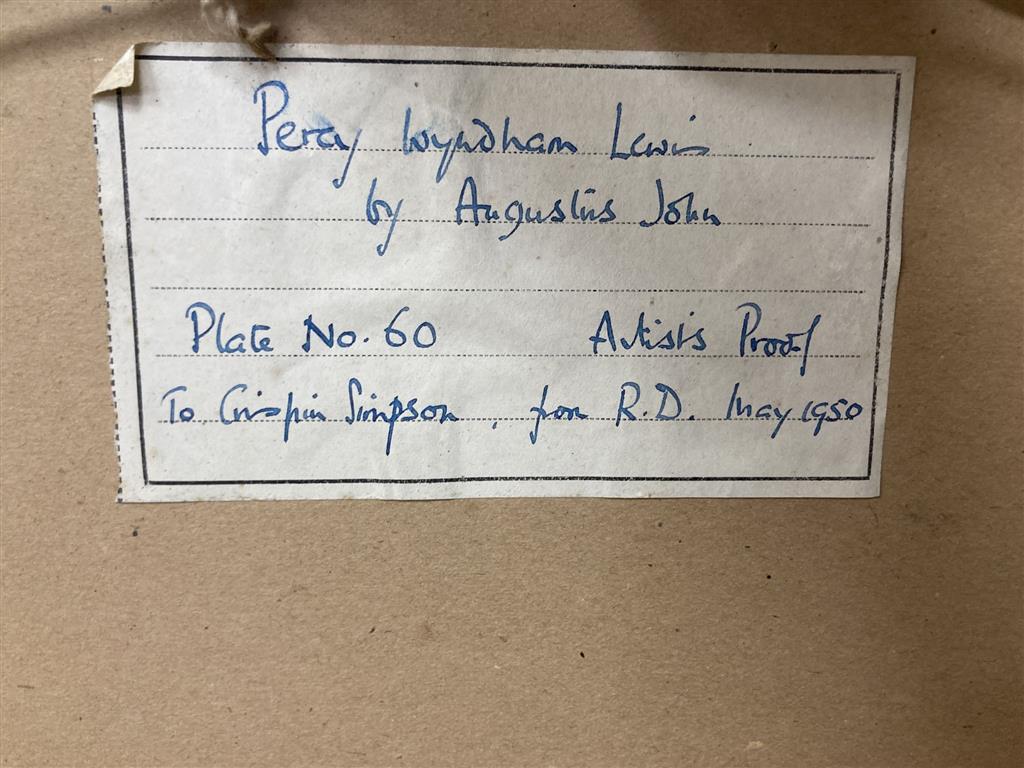 Percy Wyndham Lewis
by Augustus John
Plate No. 60 Artist's Proof
To Crispin Simpson, from R.D. May 1950